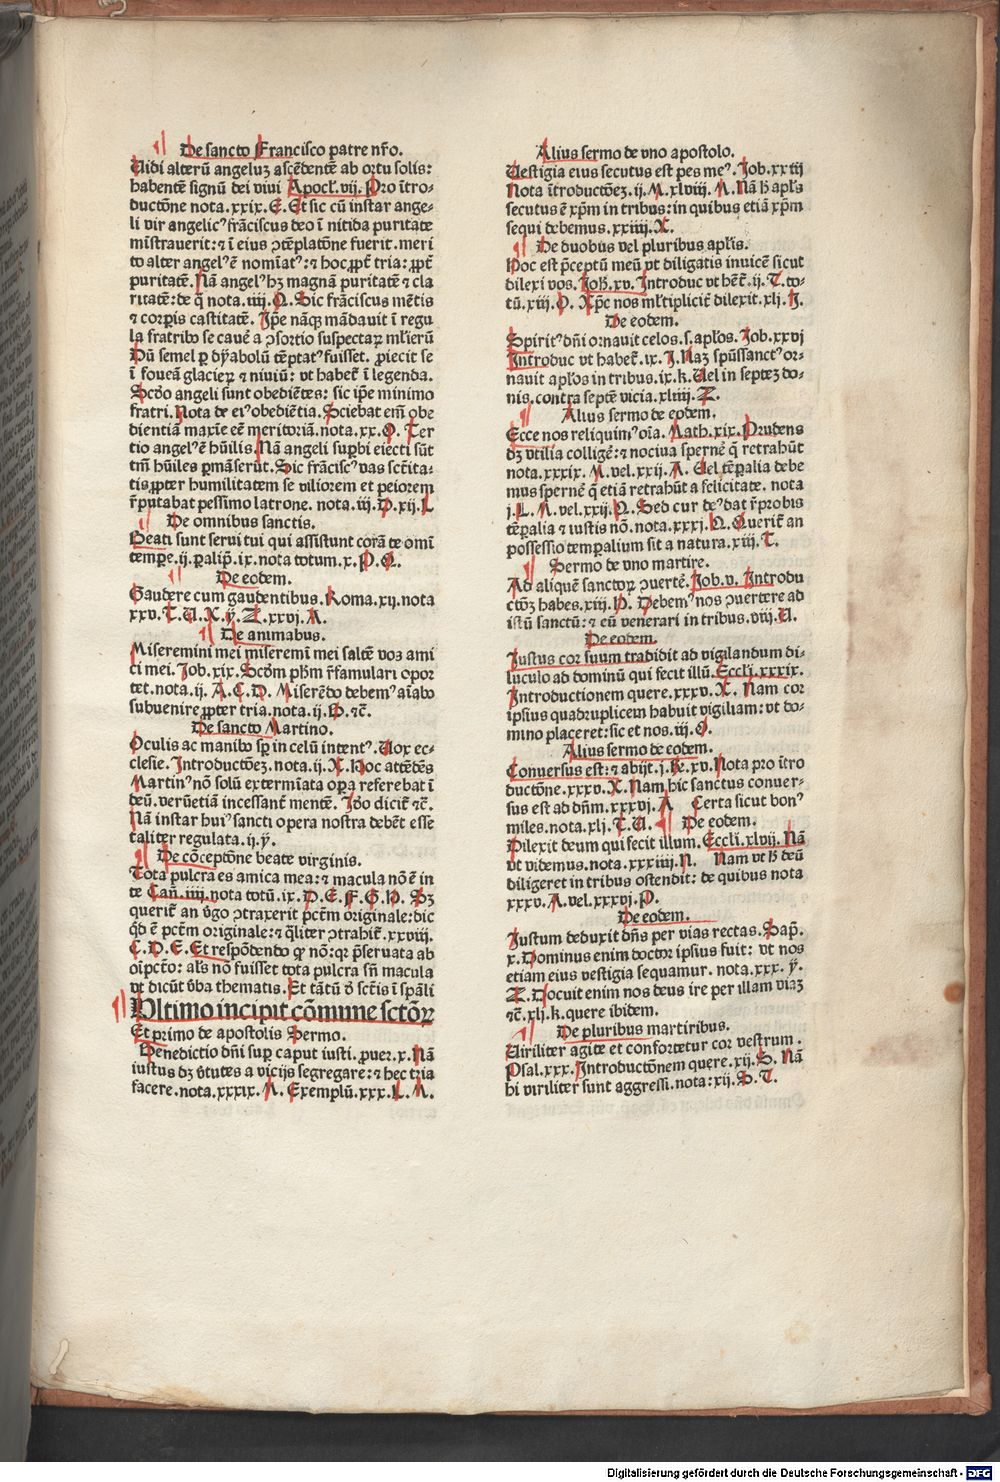 De sancto Francisco patre nr̄o.
Uidi alterū angeluꝫ ascēdentē ab ortu solis:
habentē signū dei viui Apocl̓. vij. Pro ītro-
ductōne nota. xxix. E. Et sic cū instar ange-
li vir angelicꝰ frāciscus deo ī nitida puritate
mīstrauerit: ⁊ ī eius ↄtēplatōne fuerit. meri
to alter angelꝰ ē nomīatꝰ: ⁊ hoc ꝓpt̄ tria: ꝓpt̄
puritatē. Nā angelꝰ hꝫ magnā puritatē ⁊ cla
ritatē: de q̄ nota. iiij. Q. Sic frāciscus mētis
⁊ corꝑis castitatē. Ip̄e nāqꝫ mādauit ī regu
la fratribꝰ se cauē a ↄsortio suspectaꝝ ml̓ierū
Dū semel ꝑ dyabolū tēptatꝰ fuisset. ꝓiecit se
ī foueā glacieꝝ ⁊ niuiū: vt habet̄ ī legenda.
Scd̓o angeli sunt obediētes: sic ip̄e minimo
fratri. Nota de eiꝰ obediētia. Sciebat em̄ obe
dientiā maxīe eē meritoriā. nota. xx. O. Ter
tio angelꝰ ē hūilis. Nā angeli suꝑbi eiecti sūt
tm̄ hūiles ꝑmāserūt. Sic frāciscꝰ vas sct̄ita-
tis ꝓpter humilitatem se viliorem et peiorem
r̄putabat pessimo latrone. nota. iij. D. xij. L
De omnibus sanctis.
Beati sunt serui tui qui assistunt corā te omī
tempꝑe. ij. ꝑalip̄. ix. nota totum. x. P. Q.
De eodem.
Gaudere cum gaudentibus. Roma. xij. nota
xxv. T. U. X. ẏ. Z. xxvj. A.
De animabus.
Miseremini mei miseremī mei saltē vos ami
ci mei. Job. xix. Scd̓m ph̓m r̄famulari opor
tet. nota. ij. A. C. D. Miserēdo debemꝰ aīabꝰ
subuenire ꝓpter tria. nota. ij. B. ⁊c̄.
De sancto Martino.
Oculis ac manibꝰ sp̄ in celū intentꝰ. Uox ec-
clesie. Introductōeꝫ. nota. ij. X. Hoc attēdēs
Martinꝰ nō solū extermīata oꝑa referebat ī
deū. verūetiā incessant̄ mentē. Iō dicit̄ ⁊c̄.
Nā instar huiꝰ sancti opera nostra debēt esse
taliter regulata. ij. ẏ.
De cōceptōne beate virginis.
Tota pulcra es amica mea: ⁊ macula nō ē in
te Cań. iiij. nota totū. ix. D. E. F. G. H. Sꝫ
querit̄ an v̓go ↄtraxerit pct̄m originale: dic
qd̓ ē pct̄m originale: ⁊ qͥliter ↄtrahit̄. xxviij.
C. D. E. Et respōdendo ꝙ nō: qꝛ p̄seruata ab
oi̓pct̄o: al̓s nō fuisset tota pulcra sn̄ macula
vt dicūt v̓ba thematis. Et tātū d̓ sct̄is ī sꝑāli
Ultimo incipit cōmune sctōꝝ
Et primo de apostolis Sermo.
Benedictio dn̄i suꝑ caput iusti. ꝓuer. x. Nā
iustus dꝫ v̓tutes a vicijs segregare: ⁊ hec tria
facere. nota. xxxix. M. Exemplū. xxx. L. M.
Alius sermo de vno apostolo.
Uestigia eius secutus est pes meꝰ. Job. xxiij
Nota ītroductōeꝫ. ij. M. xlviij. M. Nā h̓ apl̓s
secutus ē xp̄m in tribus: in quibus etiā xp̄m
sequi debemus. xxiiij. X.
De duobus vel pluribus apl̓is.
Hoc est p̄ceptū meū vt diligatis inuicē sicut
dilexi vos. Joh̓. xv. Introduc vt hēt̄. ij. T. to-
tū. xiij. O. Xp̄c nos ml̓tiplicit̄ dilexit. xlj. J.
De eodem.
Spiritꝰ dn̄i ornauit celos. s. apl̓os. Job. xxvj
Introduc vt habet̄. ix. J. Naꝫ sp̄ussanctꝰ or-
nauit apl̓os in tribus. ix. k. Uel in septeꝫ do-
nis. contra septē vicia. xliij. Z.
Alius sermo de eodem.
Ecce nos reliquimꝰ oīa. Math. xix. Prudens
dꝫ vtilia colligē: ⁊ nociua sperne ̓ q̄ retrahūt
nota. xxxix. M. vel. xxij. A. Uel tēꝑalia debe
mus spernē q̄ etiā retrahūt a felicitate. nota
j. L. M. vel. xxij. N. Sed cur deꝰ dat r̄probis
tēꝑalia ⁊ iustis nō. nota. xxxj. N. Querit̄ an
possessio temꝑalium sit a natura. xiij. T.
Sermo de vno martire.
Ad aliquē sanctoꝝ ↄuertē. Job. v. Introdu
ctōꝫ habes. xiij. P. Debemꝰ nos ↄuertere ad
istū sanctū: ⁊ eū venerari in tribus. viij. U.
De eodem.
Justus cor suum tradidit ad vigilandum di-
luculo ad dominū qui fecit illū. Eccli. xxxix.
Introductionem quere. xxxv. X. Nam cor
ipsius quadruplicem habuit vigiliam: vt do-
mino placeret: sic et nos. iij. O.
Alius sermo de eodem.
Conuersus est: ⁊ abijt. j. Re. xv. Nota pro ītro
ductōne. xxxv. X. Nam hic sanctus conuer-
sus est ad dn̄m. xxxvj. A Certa sicut bonꝰ
miles. nota. xlj. T. U. De eodem.
Dilexit deum qui fecit illum. Eccli. xlvij. Nā
vt videmus. nota. xxxiiij. N. Nam vt h̓ deū
diligeret in tribus ostendit: de quibus nota
xxxv. A. vel. xxxvj. P.
De eodem.
Justum deduxit dn̄s per vias rectas. Sap̄.
x. Dominus enim doctor ipsius fuit: vt nos
etiam eius vestigia sequamur. nota. xxx. ẏ.
Z. Docuit enim nos deus ire per illam viaꝫ
⁊c̄. xlj. k. quere ibidem.
De pluribus martiribus.
Uiriliter agite et confortetur cor vestrum.
Psal. xxx. Introductōnem quere. xij. S. Nā
hi viriliter sunt aggressi. nota: xij. S. T.
Digitalisierung gefördert durch die Deutsche Forschungsgemeinschaft - DFG